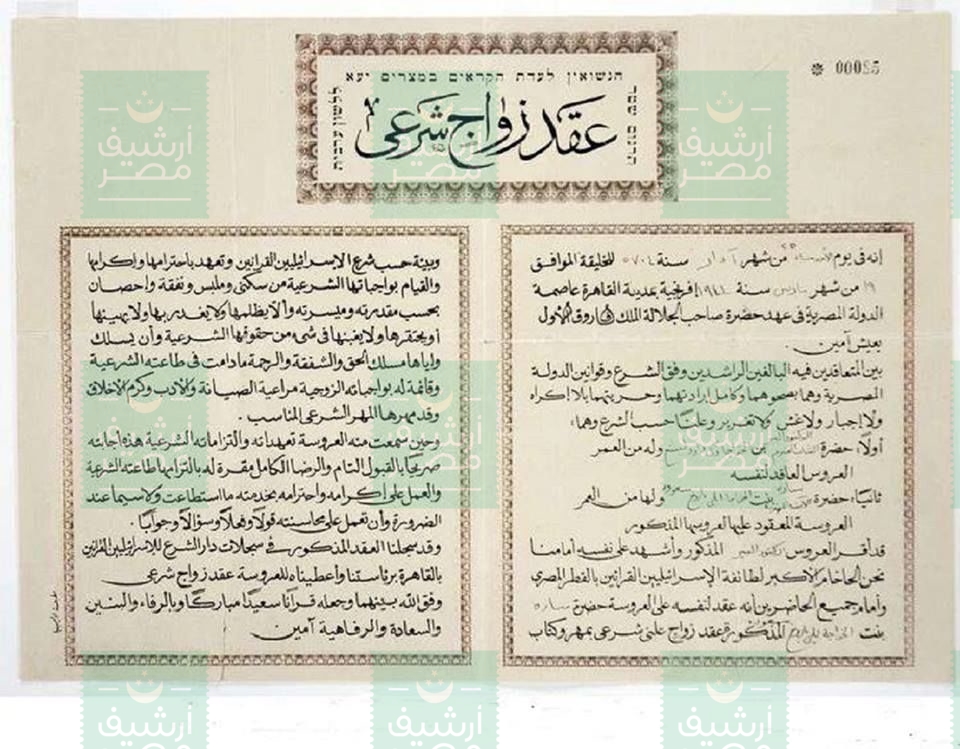 00025 *
הנשואין לעדת הקראים במצרים יעא
תרגום שטר
ללשון ערבית
عقد زواج شرعى
إنه فى يوم ٢٥ من شهر آدار سنة ٥٧٠٤ للخليقة الموافق
١٩ من شهر مارس سنة ١٩٤٤ إفرنجية بمدينة القاهرة عاصمة
الدولة المصرية فى عهد حضرة صاحب الجلالة الملك فاروق الأول
بعيش آمين .
بين المتعاقدين فيه البالغين الراشدين وفق الشرع وقوانين الدولة
المصرية وهما بصحوهما وكامل إرادتهما وحريتهما بلا اكراه
ولا إجبار ولا غش ولا تغرير وعلنًا حسب الشرع وهما:
أولا: حضرة بن وله من العمر
العروس العاقد لنفسه
ثانيًا: حضرة بنت ولها من العمر
العروسة المعقود عليها لعروسها المذكور
قد أقر العروس المذكور وأشهد على نفسه أمامنا
نحن الحاخام الأكبر لطائفة الإسرائيليين القرائين بالقطر المصرى
وأمام جميع الحاضرين انه عقد لنفسه على العروسة حضرة سارة
بنت المذكورة عقد زواج علنى شرعى بمهر وكتاب
وبينة حسب شرع الإسرائيليين القرائين وتعهد باحترامها وإكرامها
والقيام بواجباتها الشرعية من سكنى وملبس ونفقة وإحصان
بحسب مقدرته وميسرته وألا يظلمها ولا يغدر بها ولا يهينها
أو يحتقرها ولا يغبنها فى شىء من حقوقها الشرعية وأن يسلك
وإياها مسلك الحق والشفقة والرحمة مادامت فى طاعته الشرعية
وقائمة له بواجباته الزوجية مراعية الصيانة والأدب وكرم الأخلاق
وقد مهرها المهر الشرعى المناسب .
وحين سمعت منه العروسة تعهداته والتزاماته الشرعية هذه أجابته
صريحًا بالقبول التام والرضا الكامل مقرة له بالتزامها طاعته الشرعية
والعمل على إكرامه واحترامه بخدمته ما استطاعت ولا سيما عند
الضرورة وأن تعمل على محاسنته قولًا وفعلًا وسؤالًا وجوابًا .
وقد سجلنا العقد المذكور فى سجلات دار الشرع للإسرائيليين القرائين
بالقاهرة برئاستنا وأعطيناه للعروسة عقد زواج شرعى
وفق الله بينهما وجعله قرانًا سعيدًا مباركًا وبالرفاء والبنين
والسعادة والرفاهية آمين
أرشيف
مصر